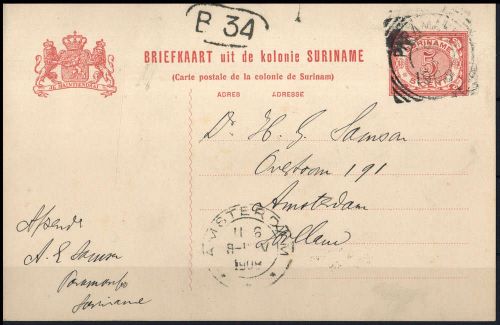 B 34
BRIEFKAART uit de kolonie SURINAME
(Carte postale de la colonie de Surinam)
JE MAINTIENDRAI
ADRES ADRESSE
SURINAME
5
CENT
PARAMA
Dr H. G. Samson
Overtoom 191
Amsterdam
Holland
AMSTERDAM
11 6
Afzender
A. E. Samson
Paramaribo
Suriname